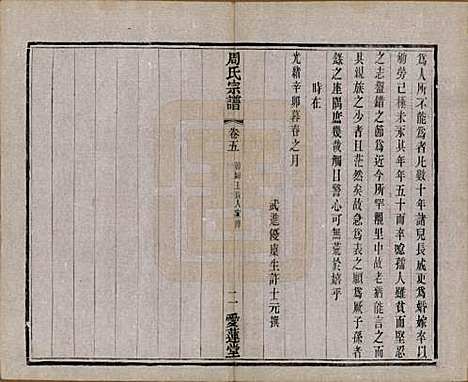 爲人所不能爲者凡數十年諸兒長成更爲婚嫁卒以
劬勞已極未永其年年五十而卒嗟孺人雖貧而堅忍
之志盤錯之節爲近今所罕覯里中故老病能言之而
其親族之少者且茫然矣故急爲表之願爲厥子孫者
錄之座隅庶幾觸目警心可無荒於嬉乎
時在
光緒辛卯暮春之月
武進優廩生許十元撰
周氏宗譜
卷五
二
愛蓮堂